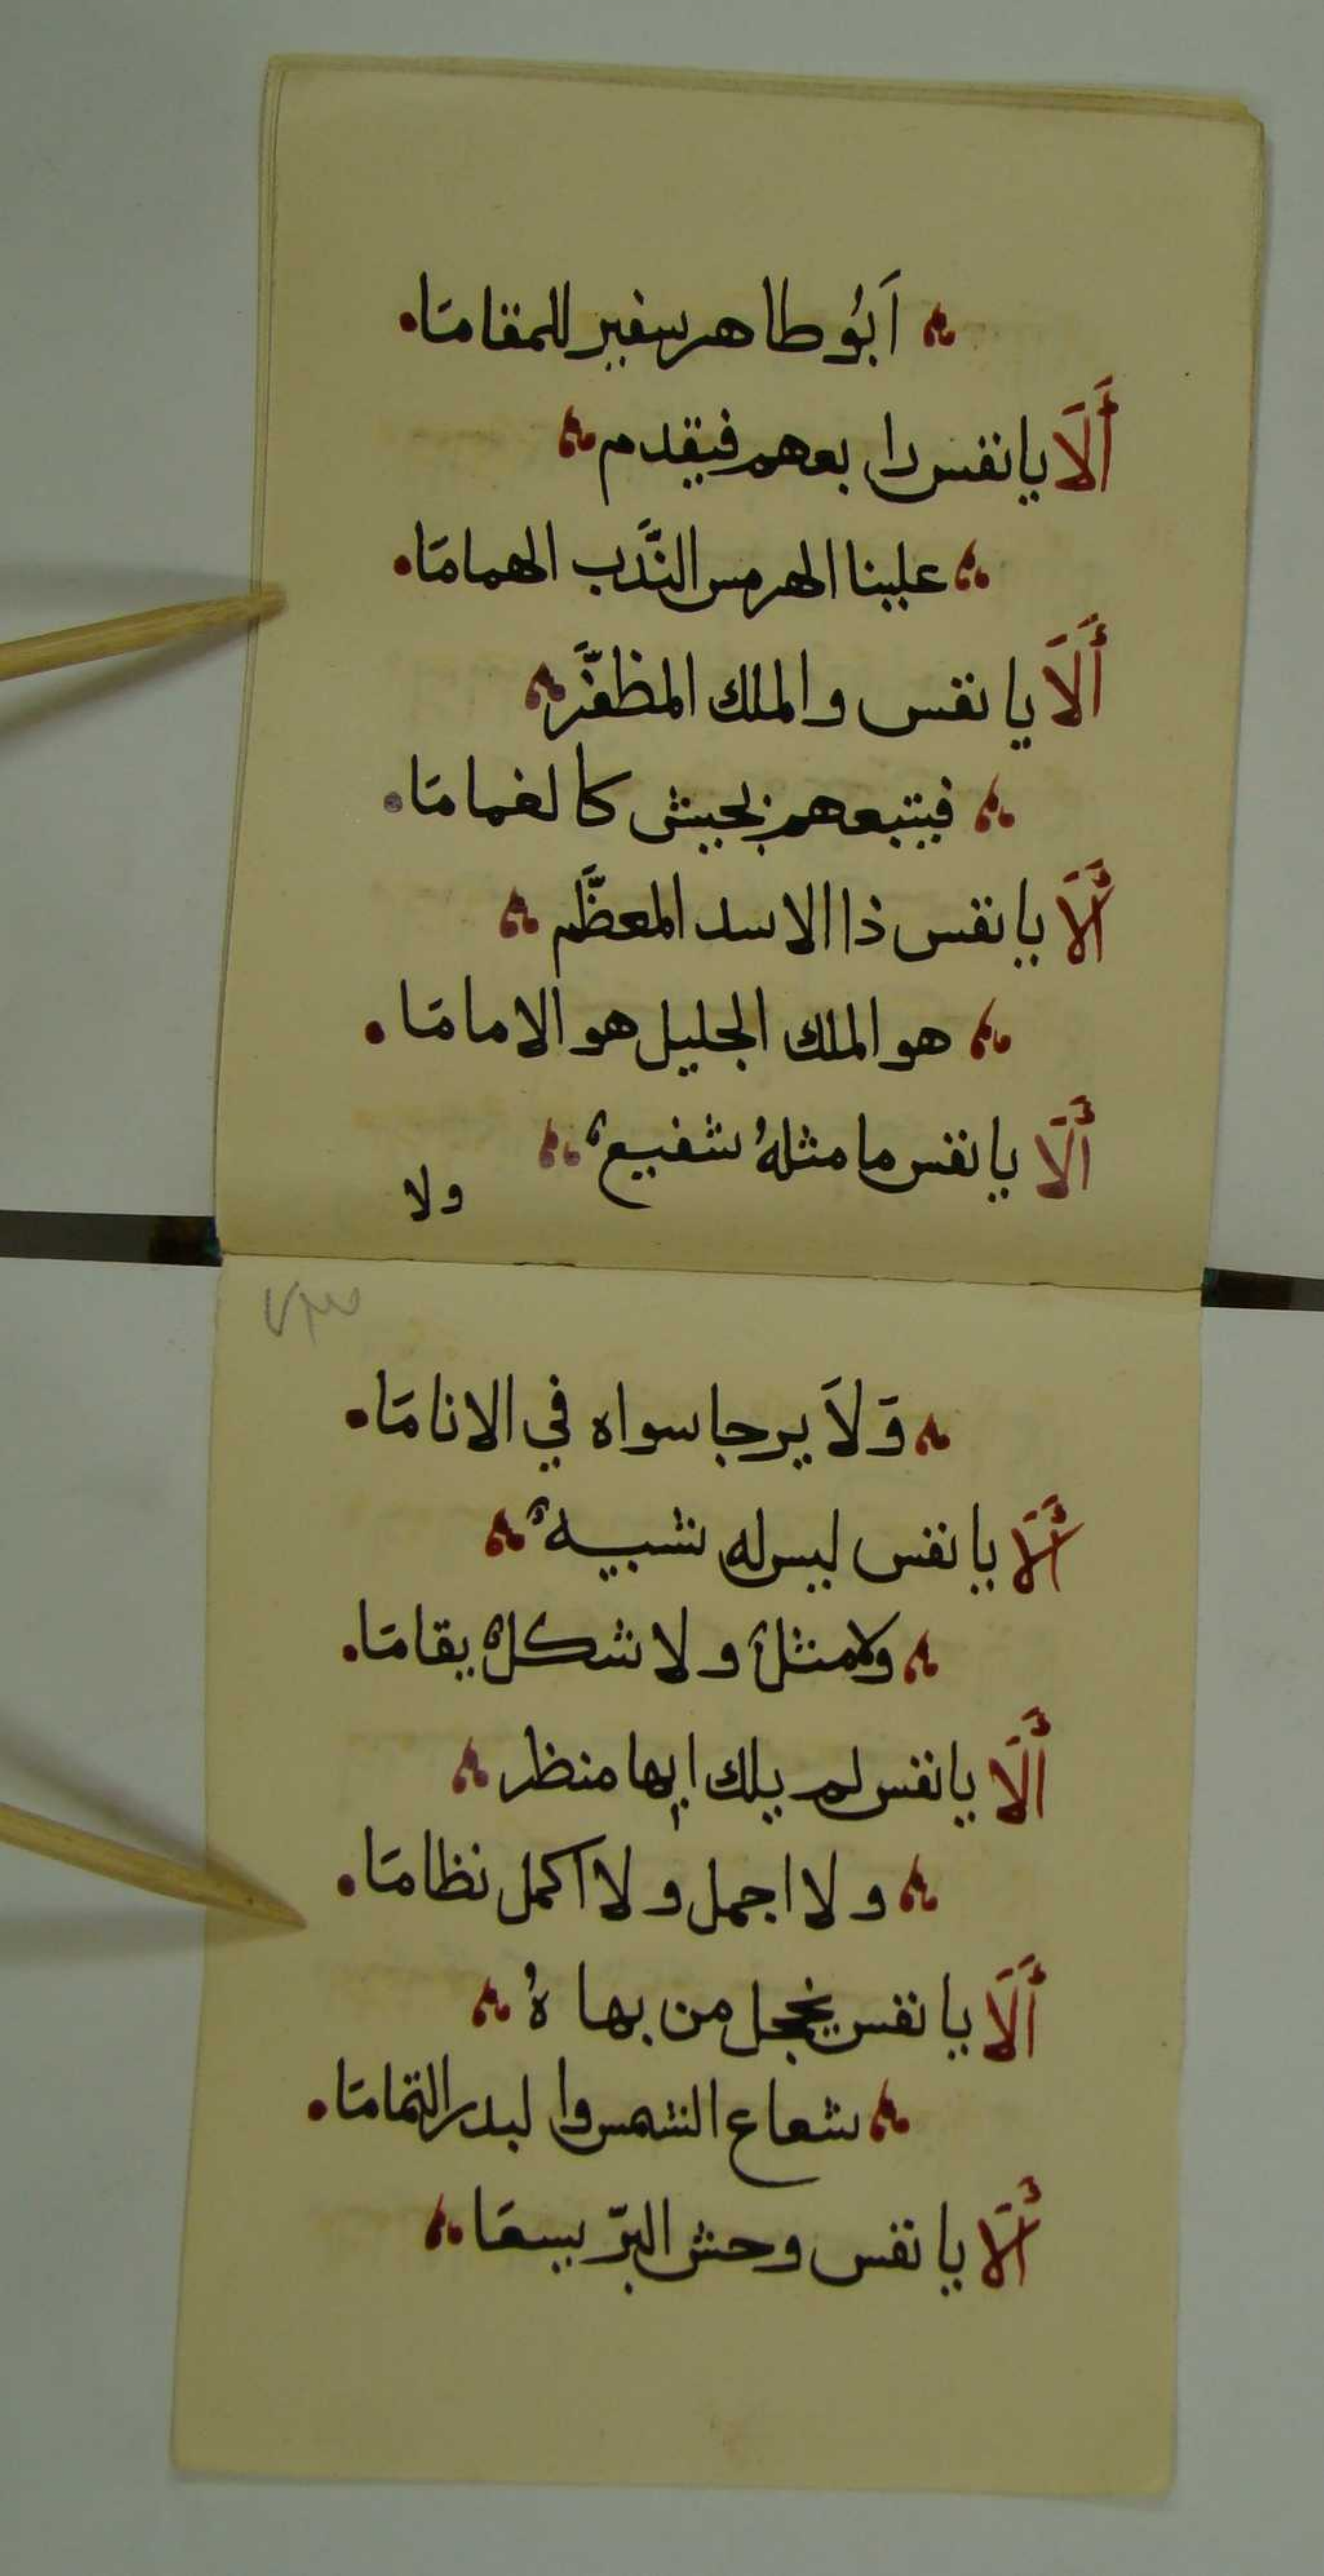 اَبُو طاهر سفير للمقامَا.
أَلَا يا نفس رابعهم فيقدم
علينا الهرمس النَّدب الهمامَا.
أَلَا يا نفس والملك المظفَّر
فيتبعهم بجيش كالغمامَا.
أَلَا يا نفس ذا الاسد المعظَّم
هو الملك الجليل هو الامامَا.
أَلَا يا نفس ما مثلهُ شفيعٌ
ولا
٧٣
وَلَا يرجا سواه في الانامَا.
أَلَا يا نفس ليس له شبيهٌ
ولا مثلٌ ولا شكلٌ يقامَا.
أَلَا يا نفس لم يلك ابها منظر
ولا اجمل ولا اكمل نظامَا.
أَلَا يا نفس يخجل من بهاهُ
شعاع الشمس والبدر التمامَا.
أَلَا يا نفس وحش البرّ يسعَا